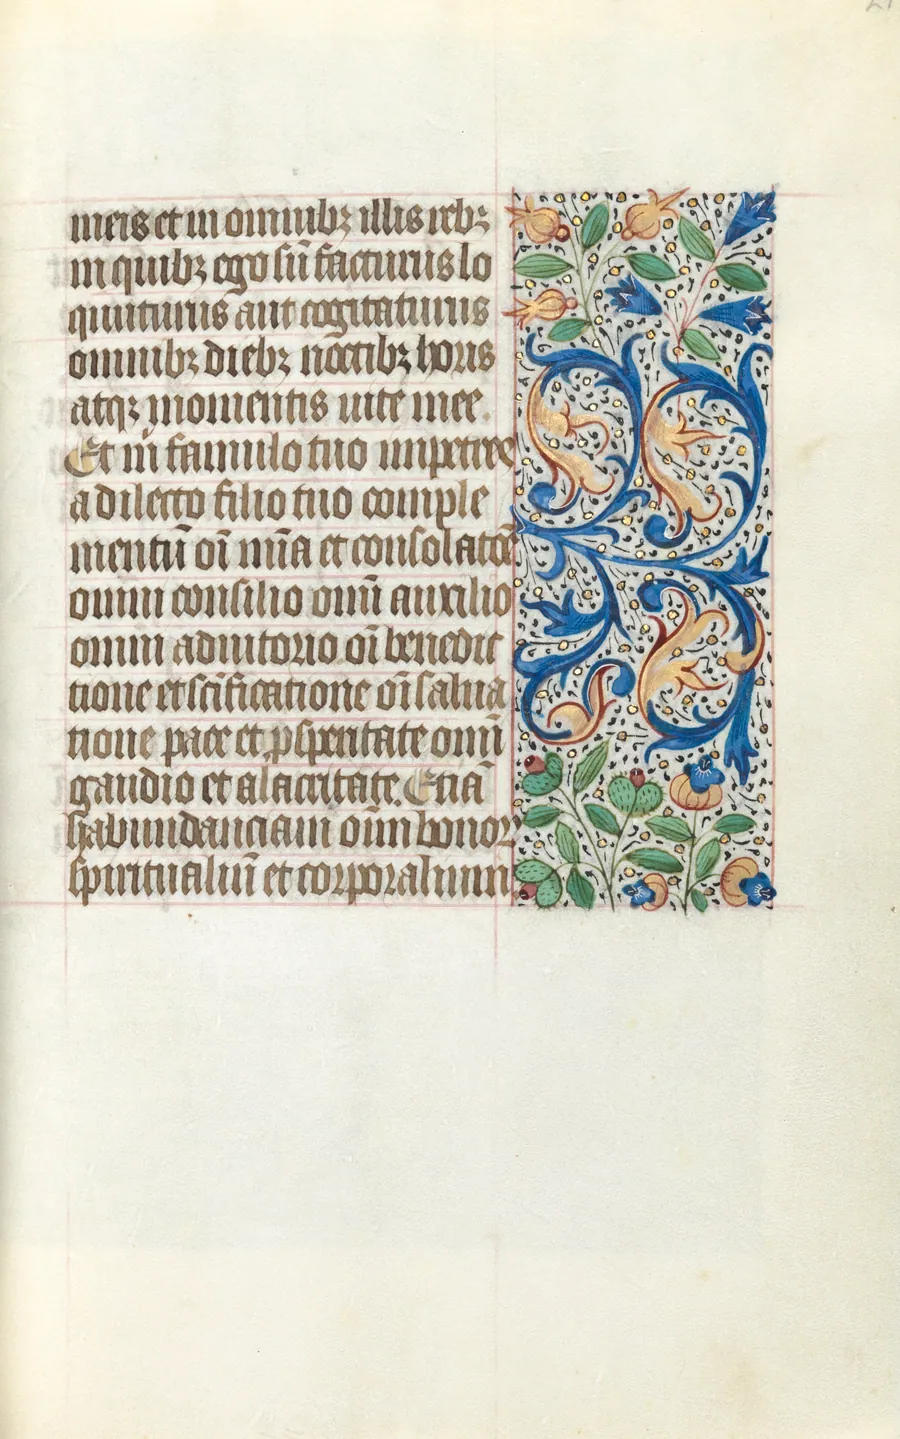 meis et in omnibꝫ illis rebꝫ
in quibꝫ ego sū facturus lo
quuturus aut cogitaturus
omnibꝫ diebꝫ noctibꝫ horis
atqꝫ momentis uite mee.
Et m̄ famulo tuo impetres
a dilecto filio tuo comple
mentū oī mīa et consolatōe
omni consilio omī auxilio
omni adiutorio oī benedic
tione et sc̄ificatione oī salua
tione pace et ꝓsperitate omī
gaudio et alacritate. Etiā
habundanciam oīm bonoꝝ
spiritualiū et corporalium